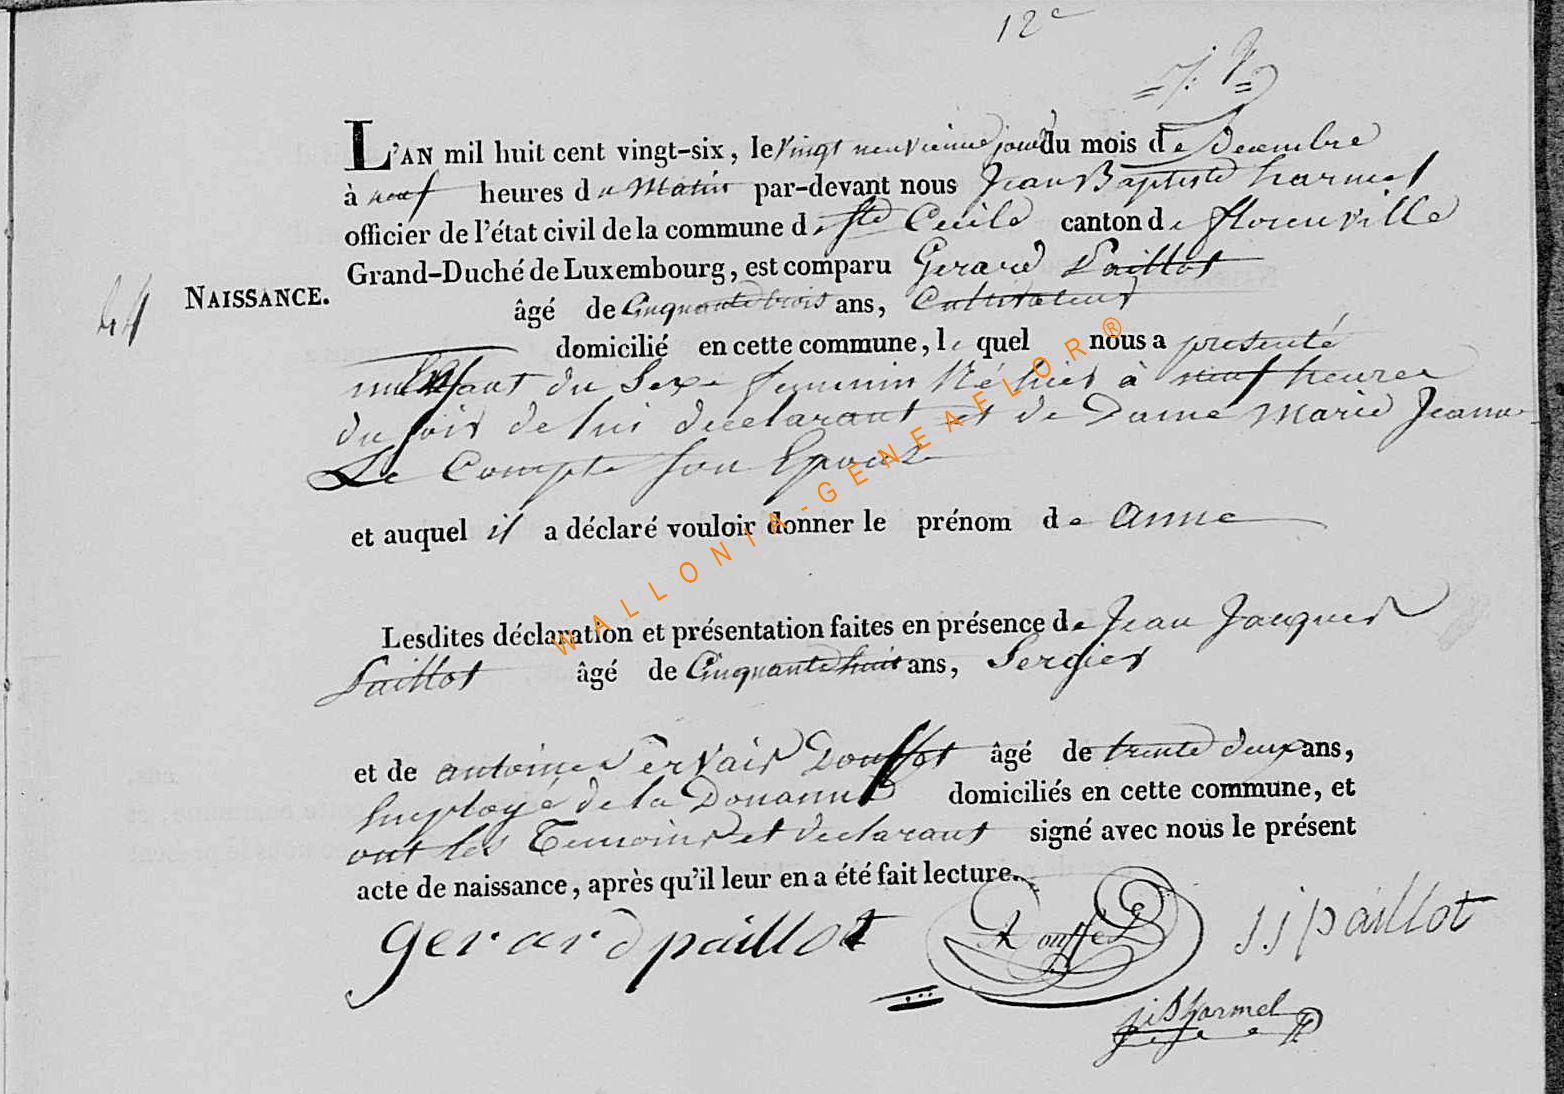 12e
L'AN mil huit cent vingt-six, le vingt neuvieme jour du mois de Decembre
à neuf heures du Matin par-devant nous Jean Baptiste harmel
officier de l'état civil de la commune de Ste Cecile canton de florenville
Grand-Duché de Luxembourg, est comparu Gerard Paillot
NAISSANCE.
âgé de Cinquante trois ans, Cultivateur
domicilié en cette commune, le quel nous a presenté
un Enfant du Sexe feminin Né hier à neuf heures
du soir de lui declarant et de Dame Marie Jeanne
Le Compte son Epouse
et auquel il a déclaré vouloir donner le prénom de Anne
Lesdites déclaration et présentation faites en présence de Jean Jacques
Paillot âgé de Cinquante huit ans, Sergier
et de antoine Servais Douffet âgé de trente deux ans,
Employé de la Douanne domiciliés en cette commune, et
ont les Temoins et declarant signé avec nous le présent
acte de naissance, après qu'il leur en a été fait lecture.
gerard paillot
A Douffet
jj paillot
jiB harmel
WALLONIA-GENEAFLOR®